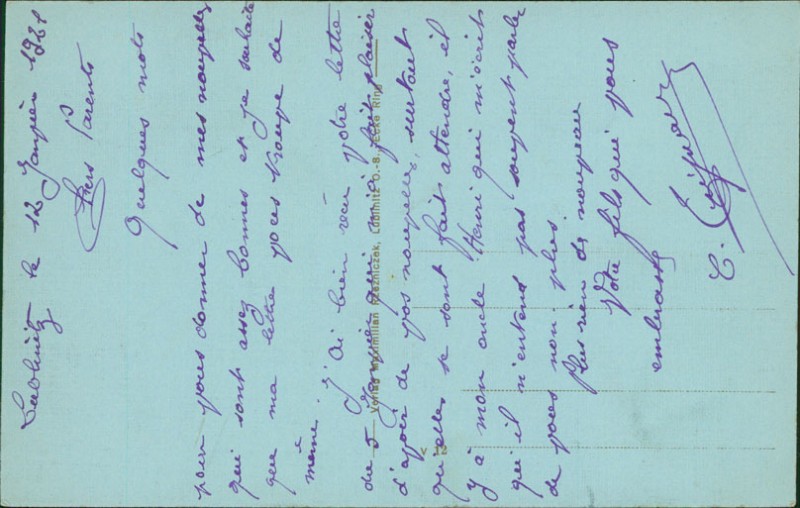 Lublinitz le 12 Janvier 1921
Chers Parents
Quelques mots
pour vous donner de mes nouvelles
qui sont assez bonnes et je souhaite
que ma lettre vous trouve de
même. J'ai bien reçu votre lettre
du 5 Janvier qui m'a fait plaisir
d'avoir de vos nouvelles, surtout
qu'elles se sont fait attendre, il
y à mon oncle Henri qui m'écrit
qu'il n'entend pas souvent parler
de vous non plus.
Plus rien de nouveau
Votre fils qui vous
embrasse
C.
Verlag Maximilian Rzezniczek, Lublinitz O.-S., Ecke Ring